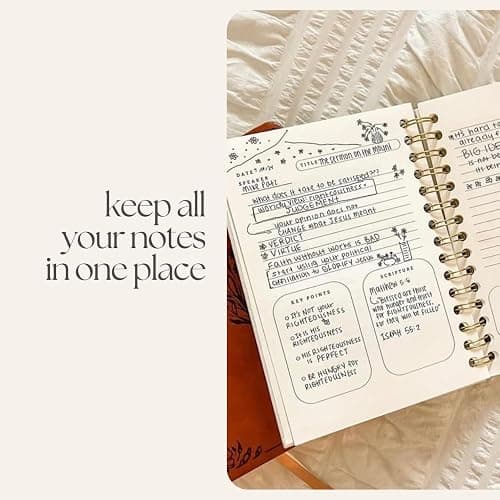 keep all
your notes
in one place
DATE:
TITLE: The Sermon on the Mount
SPEAKER
MIKE
What does it take to be satisfied??
worldly view: righteousness =
JUDGEMENT
your opinion does not
CHANGE what Jesus meant
VERDICT
VIRTUE
Faith without works is BAD
start using your political
affiliation to GLORIFY Jesus
KEY POINTS
It's NOT your
RIGHTEOUSNESS
IT IS HIS
RIGHTEOUSNESS
HIS RIGHTEOUSNESS
IS PERFECT
BE HUNGRY for
RIGHTEOUSNESS
SCRIPTURE
Matthew 5:6
"Blessed are those
who hunger and thirst
for righteousness,
for they will be filled"
ISAIAH 55:2
it's hard to
already
BIG IDE
is not be
in bein